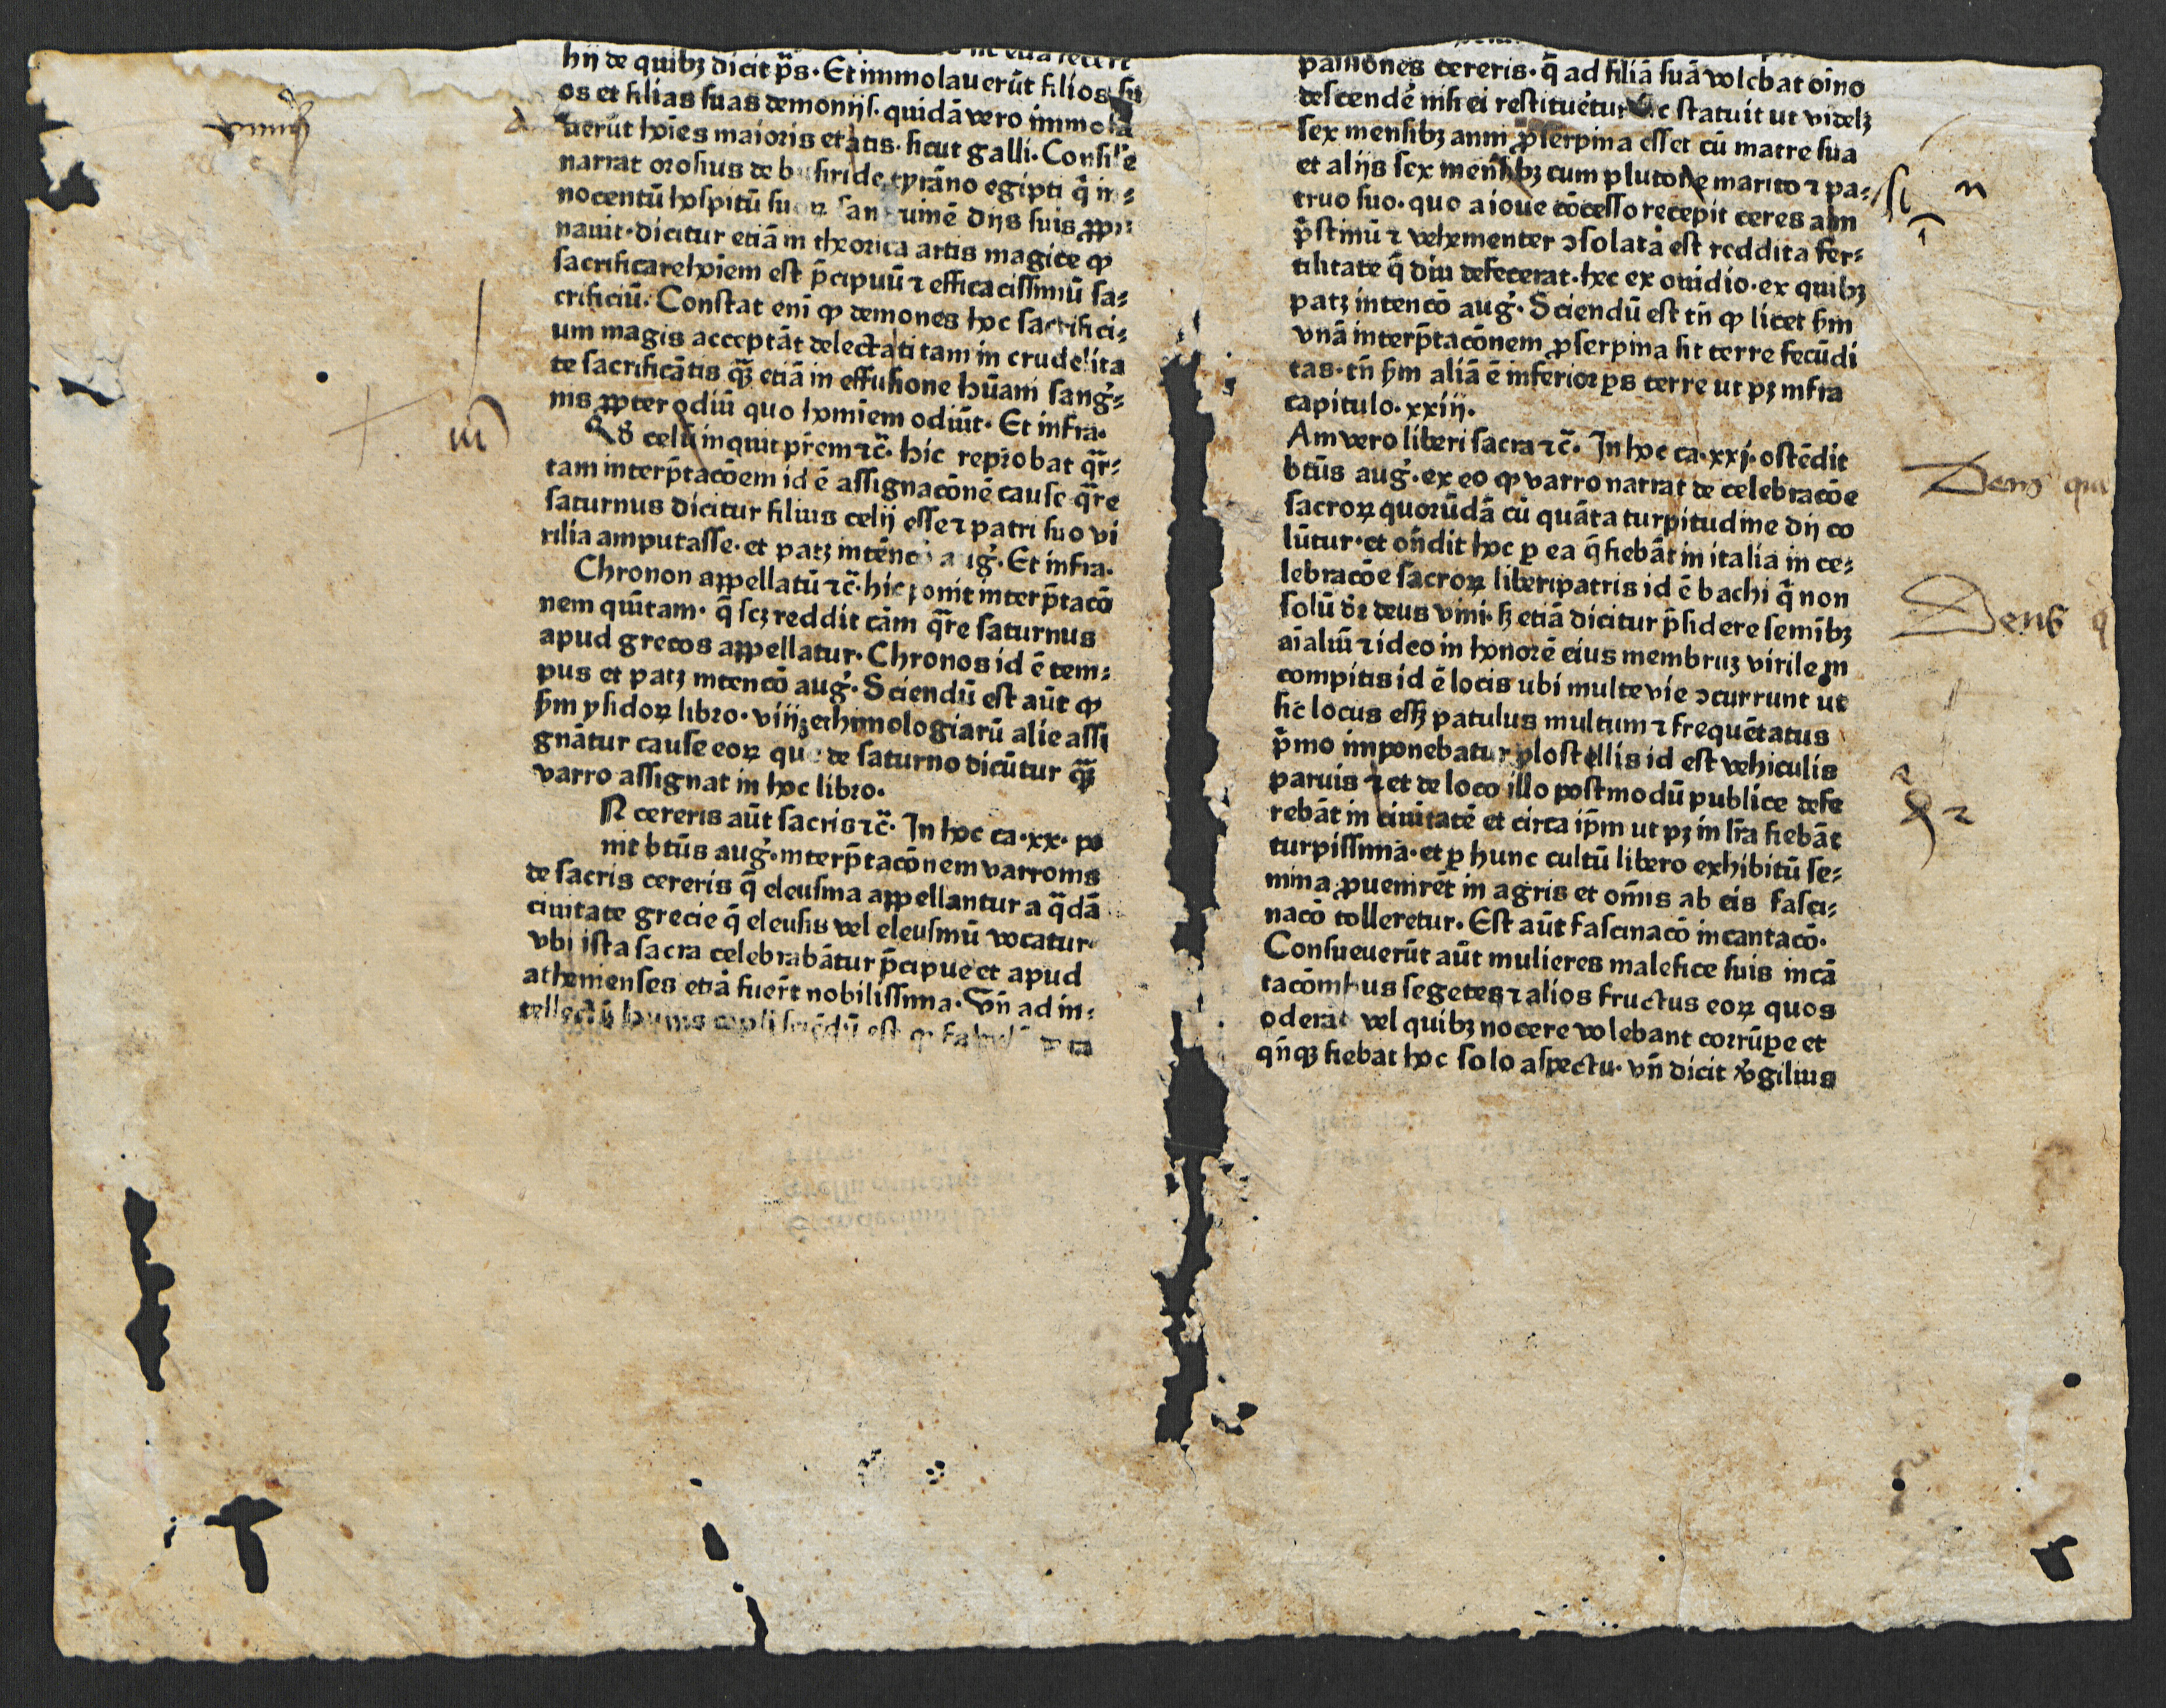 hij de quibꝫ dicit p̄s. Et immolauerūt filios su
os et filias suas demonijs. quidā vero immola
uerūt hoīes maioris etatis. sicut galli. Consil'e
narrat orosius de busiride tyrāno egipti q̄ in⸗
nocentū hospitū suoꝝ sanguinē dijs suis ꝓpi
nauit. dicitur etiā in theorica artis magice ꝙ
sacrificare hoīem est p̄cipuū ⁊ efficacissimū sa⸗
crificiū. Constat enī ꝙ demones hoc sacrifici⸗
um magis acceptāt delectati tam in crudelita
te sacrificātis qᷓꝫ etiā in effusione hūani sang'⸗
nis ꝓpter odiū quo hominem odiūt. Et infra.
Qd̕ celū inquit pr̄em ⁊c̄. hic reprobat qᷓr⸗
tam interp̄tacōem id ē assignacōnē cause qᷓre
saturnus dicitur filius celij esse ⁊ patri suo vi
rilia amputasse. et patꝫ intēncō aug̕. Et infra.
Chronon appellatū ⁊c̄. hic ponit interp̄tacō
nem quītam. q̄ scꝫ reddit cām qᷓre saturnus
apud grecos appellatur. Chronos id ē tem⸗
pus et patꝫ intencō aug̕. Sciendū est aūt ꝙ
ẜm ysidoꝝ libro. viij ethimologiarū alie assi
gnātur cause eoꝝ que de saturno dicūtur qᷓꝫ
varro assignat in hoc libro.
N cereris aūt sacris ⁊c̄. In hoc ca. xx. po
nit btūs aug̕. interp̄tacōnem varronis
de sacris cereris q̄ eleusina appellantur a q̄dā
ciuitate grecie q̄ eleusis vel eleusinū vocatur
vbi ista sacra celebrabātur p̄cipue et apud
athenienses etiā fuer̄t nobilissima. Vn̄ ad in⸗
tellectū huius capli sciēdū est ꝙ
passiones cereris. q̄ ad filiā suā volebat oīno
descendē nisi ei restitueretur statuit ut videlꝫ
sex mensibꝫ anni ꝓserpina esset cū matre sua
et alijs sex mensibꝫ cum plutone marito ⁊ pa⸗
truo suo. quo a ioue cōcesso recepit ceres aīm
p̄stinū ⁊ vehementer ꝯsolata est reddita fer⸗
tilitate q̄ diu defecerat. hec ex ouidio. ex quibꝫ
patꝫ intencō aug̕. Sciendū est tn̄ ꝙ licet ẜm
vnā interp̄tacōnem ꝓserpina sit terre fecūdi
tas. tn̄ ẜm aliā ē inferior ꝑs terre ut pꝫ infra
capitulo. xxiij.
Am vero liberi sacra ⁊c̄. In hoc ca. xxj. ostēdit
btūs aug̕. ex eo ꝙ varro narrat de celebracōe
sacroꝝ quorūdā cū quāta turpitudine dij co
lūtur. et on̄dit hoc ꝑ ea q̄ fiebāt in italia in ce⸗
lebracōe sacroꝝ liberi patris id ē bachi q̄ non
solū dꝛ deus vini. sꝫ etiā dicitur p̄sidere semībꝫ
aīaliū ⁊ ideo in honorē eius membruꝫ virile in
compitis id ē locis ubi multe vie ꝯcurrunt ut
sic̄ locus esse⁊ patulus multum ⁊ frequētatus
p̄mo imponebatur plostellis id est vehiculis
paruis ⁊ et de loco illo postmodū publice defe
rebāt in ciuitatē et circa ip̄m ut pꝫ in lr̄a fiebāt
turpissima. et ꝑ hunc cultū libero exhibitū se⸗
mina ꝓuenirēt in agris et om̄is ab eis fasci⸗
nacō tolleretur. Est aūt fascinacō incantacō.
Consueuerūt aūt mulieres malefice suis incā
tacōnibus segetes ⁊ alios fructus eoꝝ quos
oderāt vel quibꝫ nocere volebant corrūpe et
qn̄qꝫ fiebat hoc solo aspectu. vn̄ dicit v̕gilius
Deus qui
Deus q